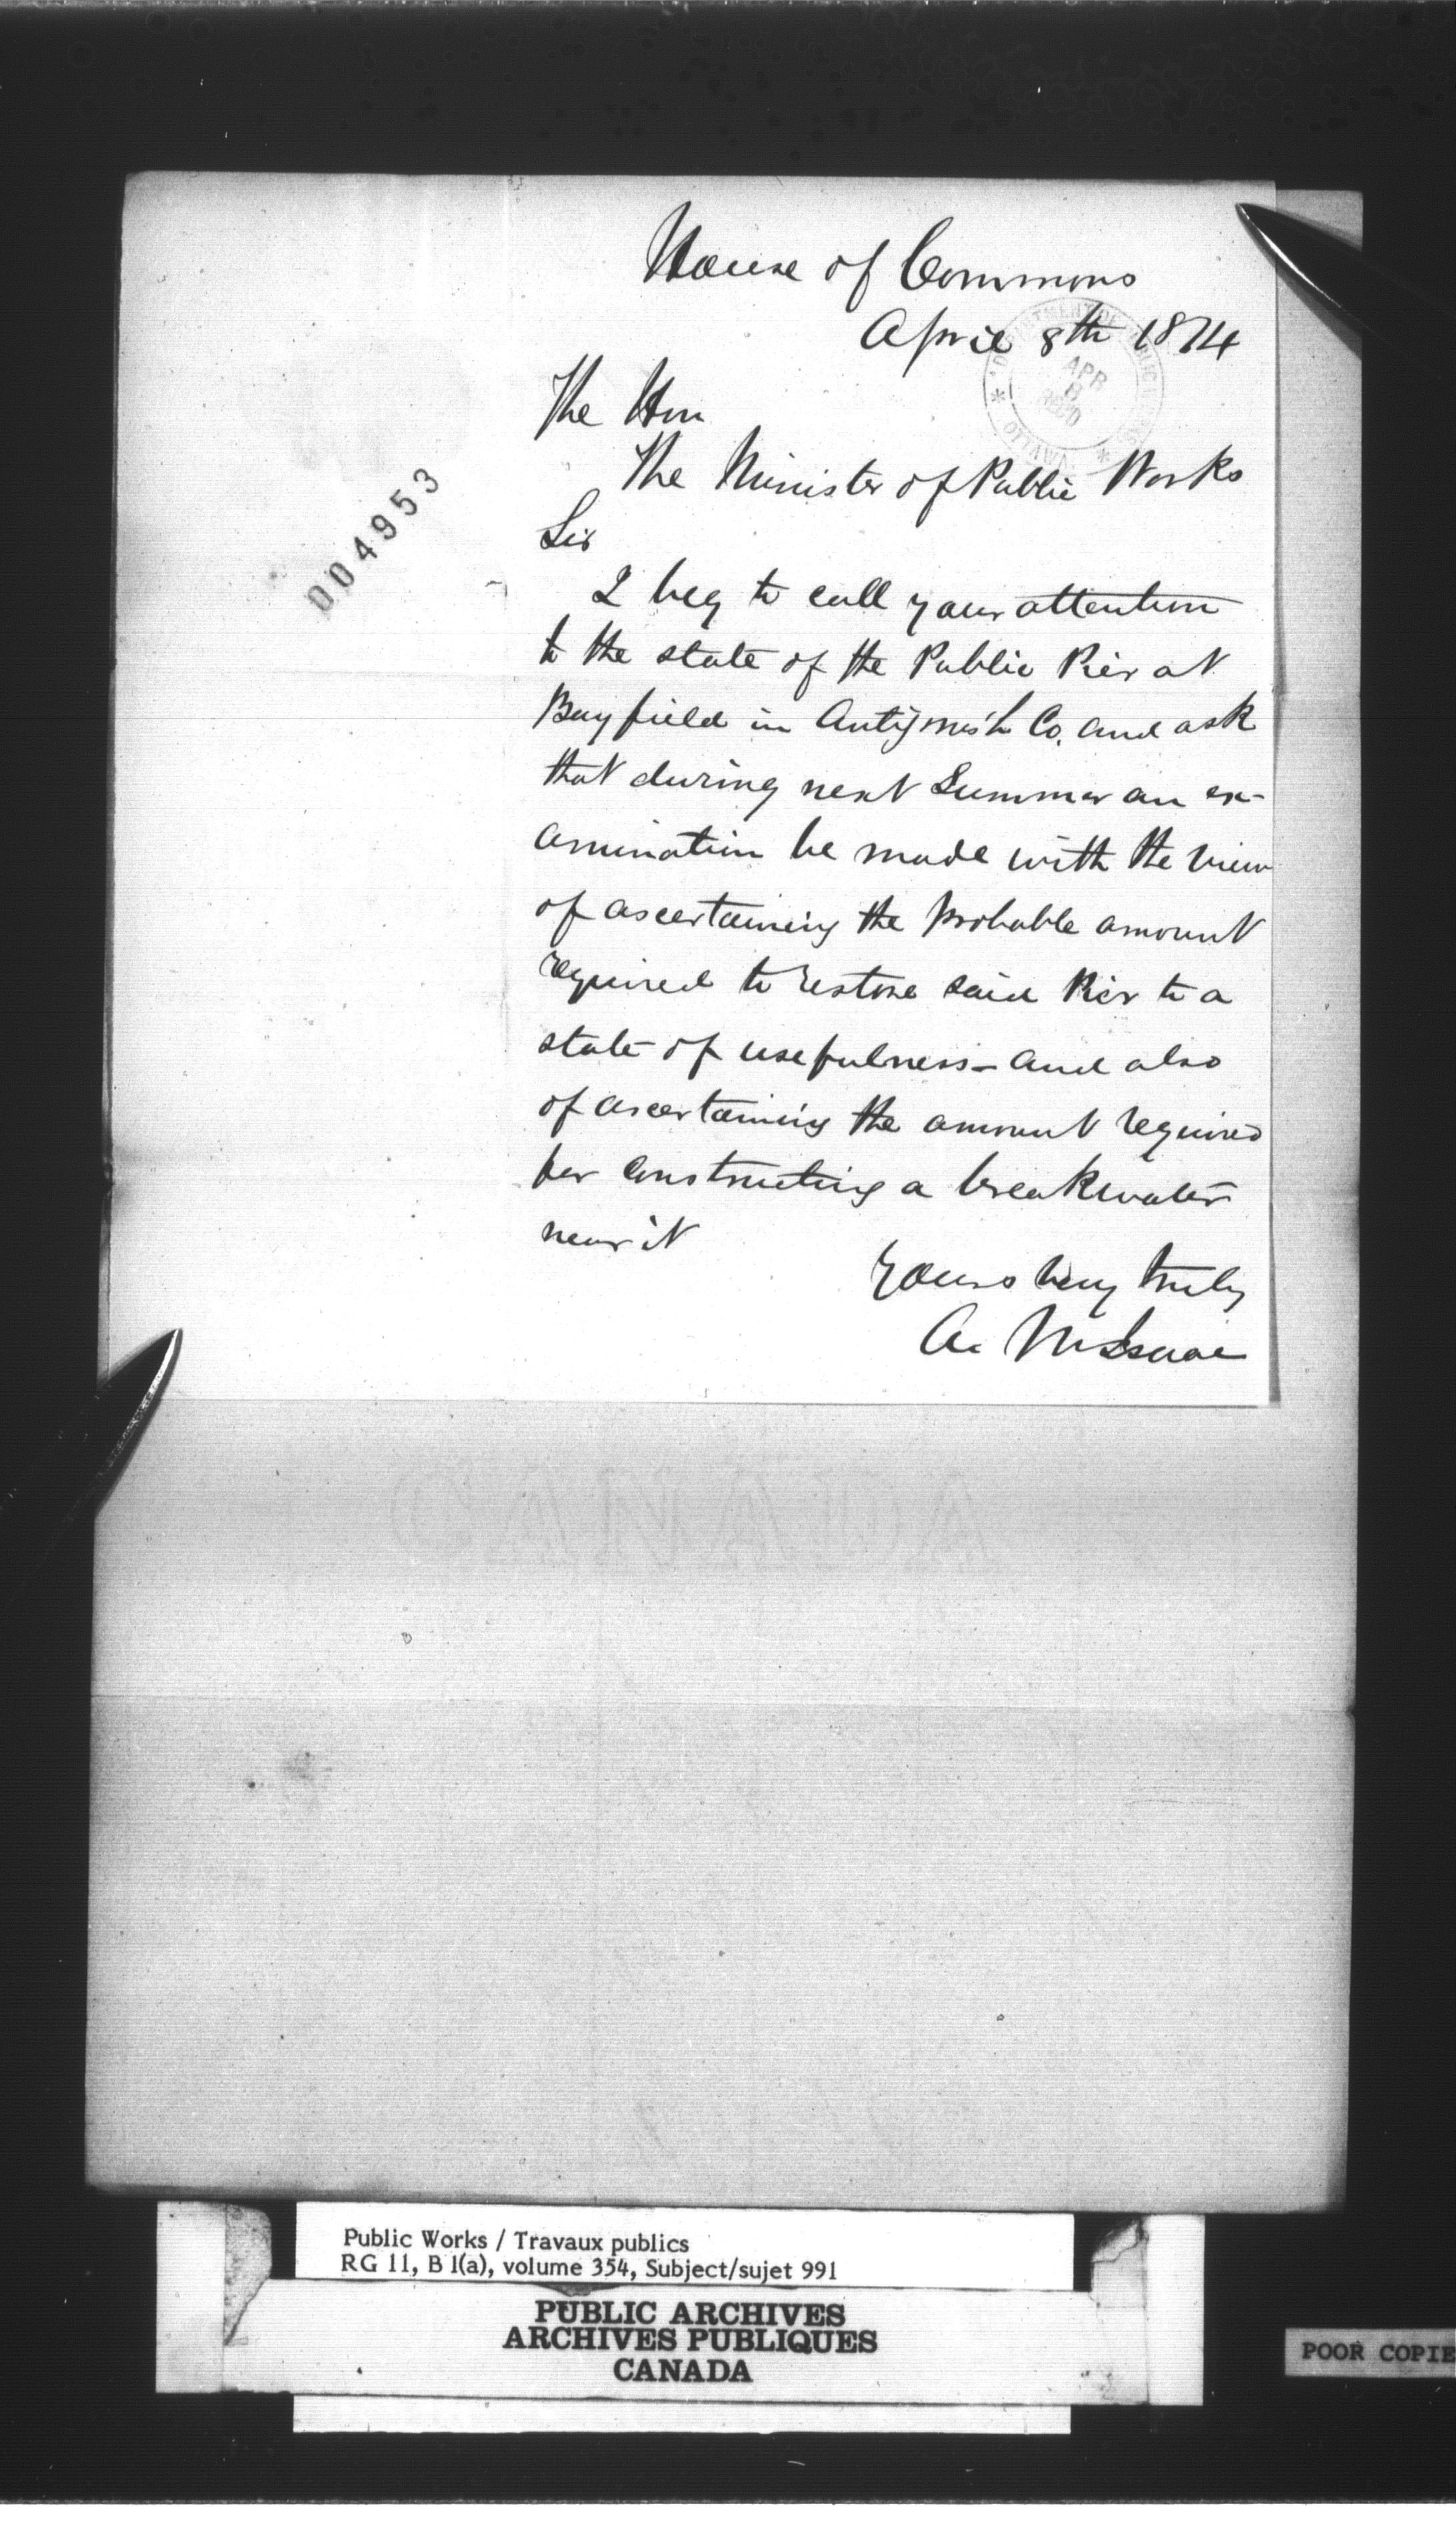 House of Commons
April 8th 1874
DEPARTMENT OF PUBLIC WORKS
APR
8
REC'D
OTTAWA
The Hon
The Minister of Public Works
Sir
004953
I beg to call your attention
to the state of the Public Pier at
Bayfield in Antigonish Co. and ask
that during next Summer an ex-
amination be made with the view
of ascertaining the probable amount
required to restore said Pier to a
state of usefulness - and also
of ascertaining the amount required
for constructing a breakwater
near it
Yours very truly
A. McIsaac
CANADA
Public Works / Travaux publics
RG 11, B 1(a), volume 354, Subject/sujet 991
PUBLIC ARCHIVES
ARCHIVES PUBLIQUES
CANADA
POOR COPIE